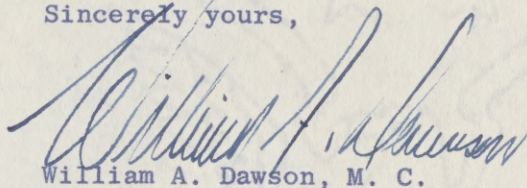 Sincerely yours,
William A. Dawson
William A. Dawson, M. C.